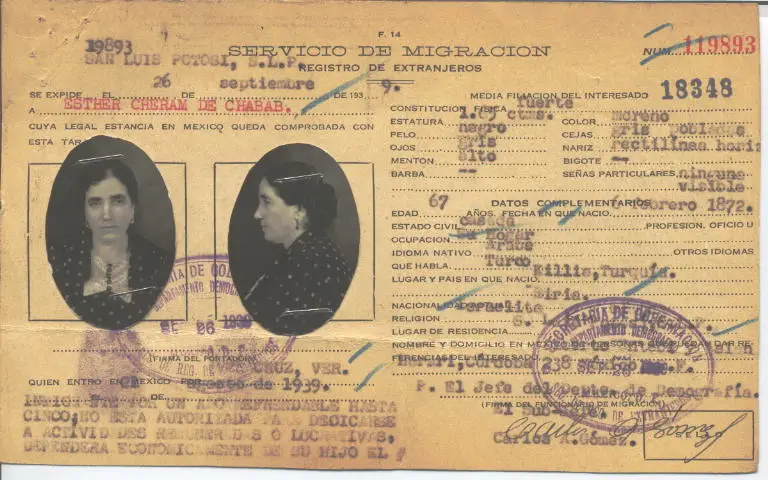 F. 14
19893
SERVICIO DE MIGRACION
NUM. 119893
SAN LUIS POTOSI, S.L.P.
REGISTRO DE EXTRANJEROS
SE EXPIDE EL 26 DE septiembre DE 193 9.
A ESTHER CHERAM DE CHABAB.
CUYA LEGAL ESTANCIA EN MEXICO QUEDA COMPROBADA CON
ESTA
MEDIA FILIACION DEL INTERESADO 18348
CONSTITUCION FISICA fuerte
ESTATURA ctms. COLOR moreno
PELO negro CEJAS gris pobladas
OJOS gris NARIZ rectilinea
MENTON alto BIGOTE --
BARBA -- SEÑAS PARTICULARES ninguna
visible
DATOS COMPLEMENTARIOS
EDAD 67 AÑOS. FECHA EN QUE NACIO. febrero 1872.
ESTADO CIVIL casada PROFESION, OFICIO U
OCUPACION su hogar
IDIOMA NATIVO Arabe OTROS IDIOMAS
QUE HABLA Turco
LUGAR Y PAIS EN QUE NACIO. Killis, Turquía.
NACIONALIDAD Siria.
RELIGION Israelita
LUGAR DE RESIDENCIA
NOMBRE Y DOMICILIO EN MEXICO DE PERSONAS QUE PUEDAN DAR RE-
FERENCIAS DEL INTERESADO.
Harari, Cordoba 238 México, D.F.
SECRETARIA DE GOBERNACION
SEP 26 1939
(FIRMA DEL PORTADOR)
QUIEN ENTRO EN MEXICO POR CRUZ, VER.
DE agosto de 1939.
POR UN AÑO REFRENDABLE HASTA
CINCO; NO ESTA AUTORIZADA PARA DEDICARSE
A ACTIVIDADES REMUNERADAS O LUCRATIVAS,
DEPENDERA ECONOMICAMENTE DE SU HIJO EL
P. El Jefe del Depto. de Demografía.
(FIRMA DEL FUNCIONARIO DE MIGRACION)
El Sub-Jefe,
Carlos A. Gómez.
SELLO